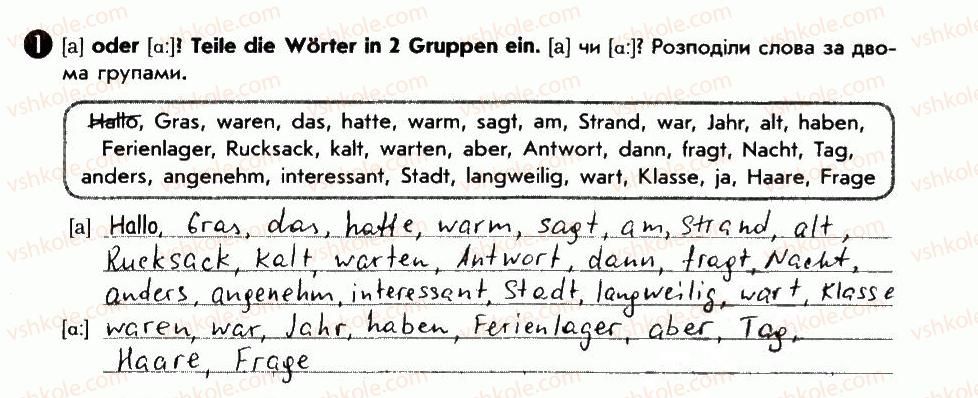 1 [a] oder [ɑ:]? Teile die Wörter in 2 Gruppen ein. [a] чи [ɑ:]? Розподіли слова за дво-
ма групами.
Hallo, Gras, waren, das, hatte, warm, sagt, am, Strand, war, Jahr, alt, haben,
Ferienlager, Rucksack, kalt, warten, aber, Antwort, dann, fragt, Nacht, Tag,
anders, angenehm, interessant, Stadt, langweilig, wart, Klasse, ja, Haare, Frage
[a] Hallo, Gras, das, hatte, warm, sagt, am, Strand, alt,
Rucksack, kalt, warten, Antwort, dann, fragt, Nacht,
anders, angenehm, interessant, Stadt, langweilig, wart, Klasse
[ɑ:] waren, war, Jahr, haben, Ferienlager, aber, Tag,
Haare, Frage
vshkole.com